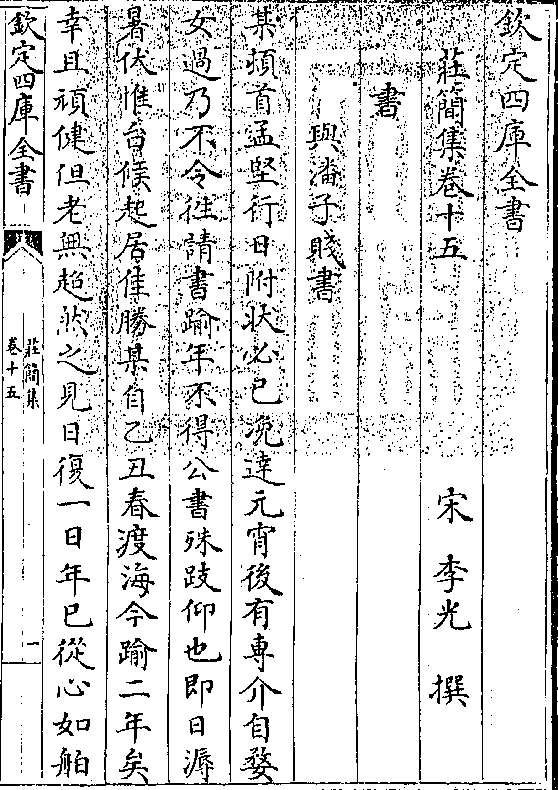 欽定四庫全書
莊簡集卷十五
宋 李光 撰
書
與潘子賤書
某頓首孟堅行日附狀必已浼達元宵後有專介自婺
女過乃不令徃請書踰年不得公書殊跂仰也即日溽
暑伏惟台候起居佳勝某自乙丑春渡海今踰二年矣
幸且頑健但老無超然之見日復一日年已從心如舶
欽定四庫全書
莊簡集
卷十五
一